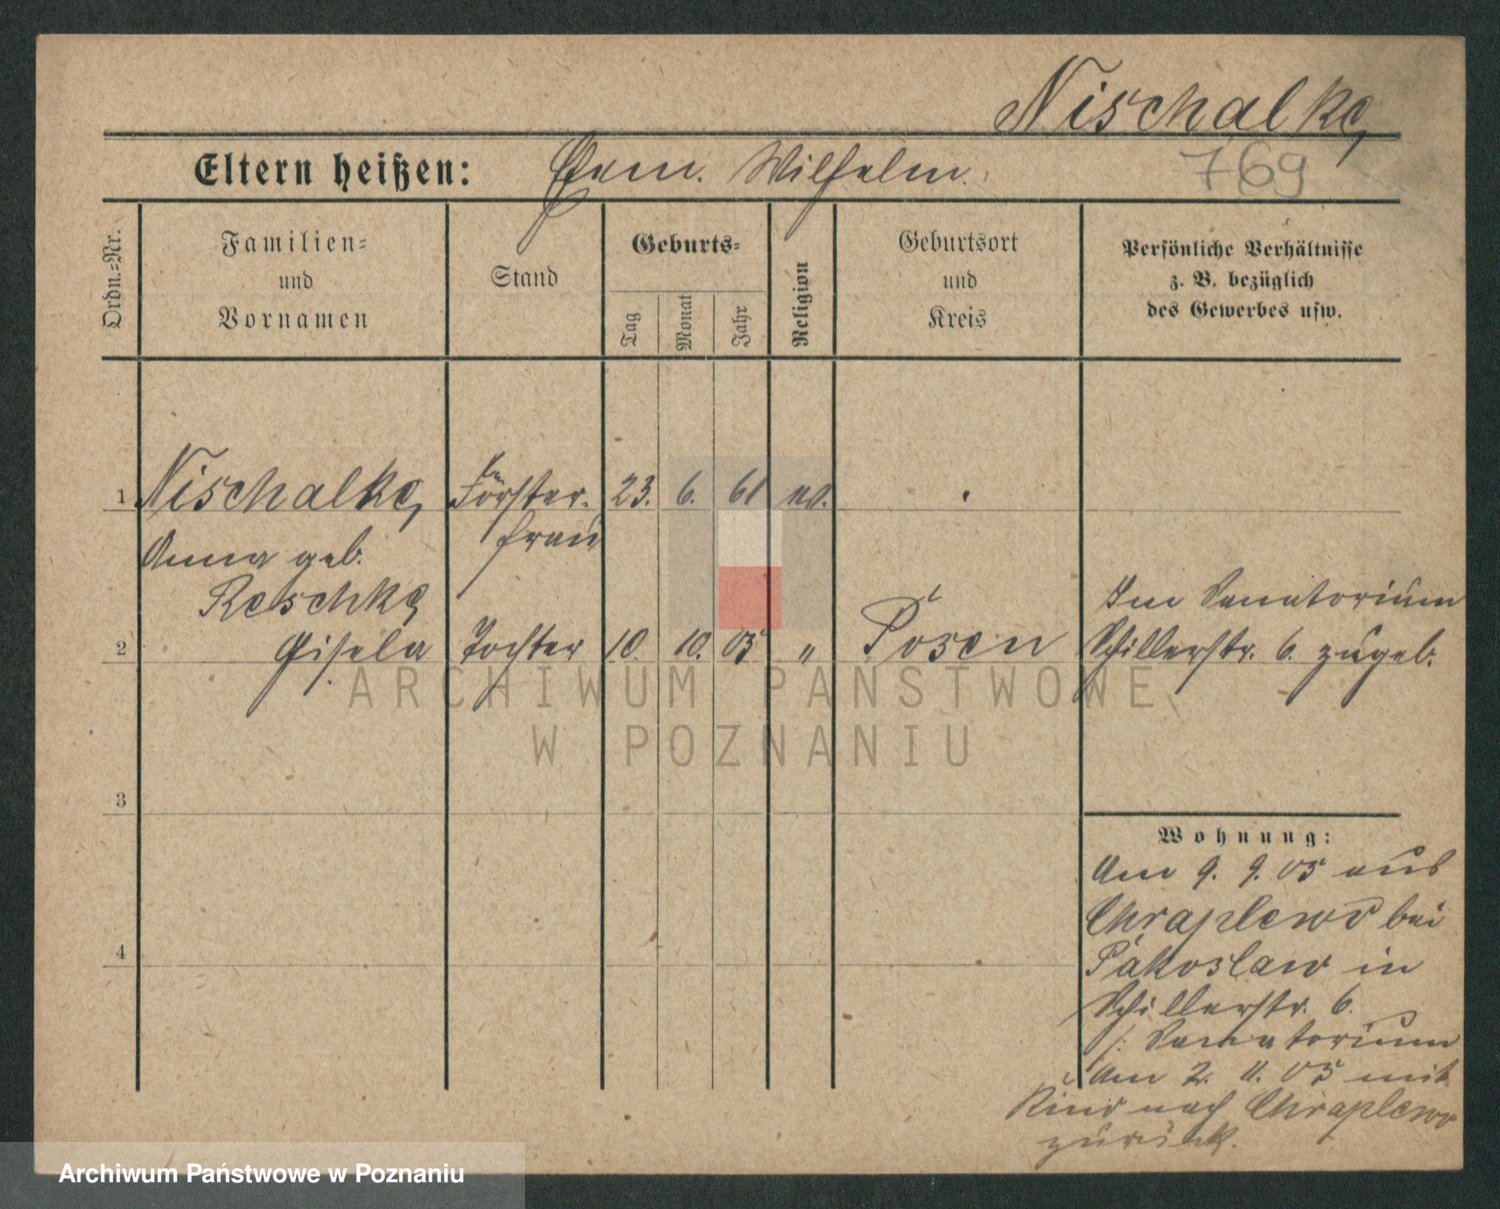 Nischalke,
769
Eltern heißen: Ehem. Wilhelm.
Ordn.=Nr.
Familien=
und
Vornamen
Stand
Geburts=
Tag
Monat
Jahr
Religion
Geburtsort
und
Kreis
Persönliche Verhältnisse
z. B. bezüglich
des Gewerbes usw.
1 Nischalke, Förster- 23. 6. 61 .
frau
Anna geb.
Reschke
2 Gisela Tochter 10. 10. 05 " Posen
Im Sanatorium
Schillerstr. 6. zugeb.
3
4
Wohnung:
Am 9. 9. 05 aus
Chraplewo bei
Pakoslaw in
Schillerstr. 6.
/: Sanatorium
Am 2. 11. 05 mit
Kind nach Chraplewo
zurück.
ARCHIWUM PAŃSTWOWE
W POZNANIU
Archiwum Państwowe w Poznaniu